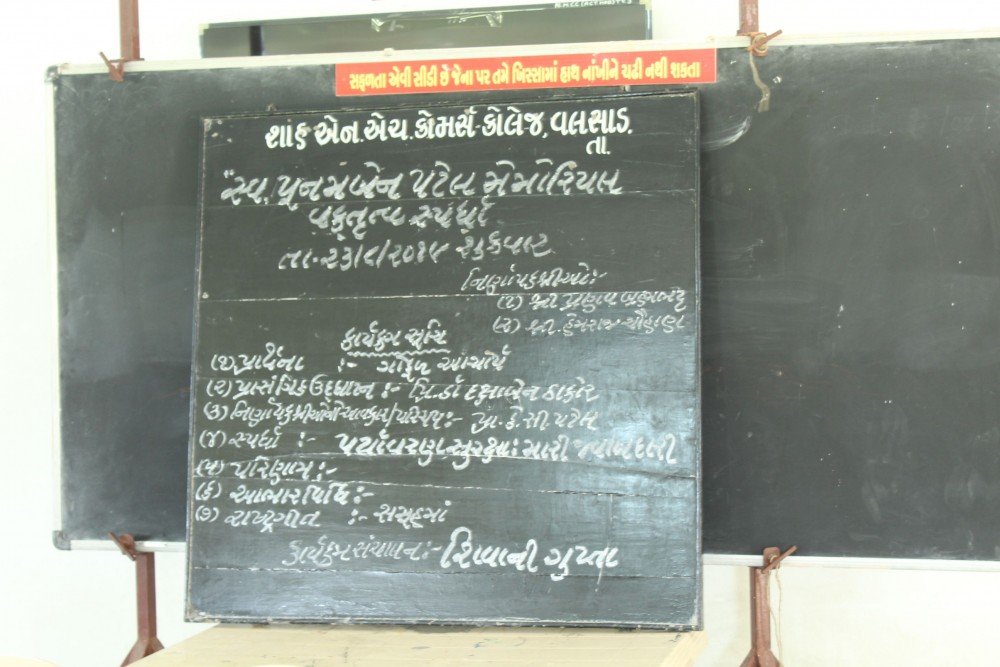 સફળતા એવી સીડી છે જેના પર તમે ખિસ્સામાં હાથ નાંખીને ચઢી નથી શકતા
શાહ એન. એચ. કોમર્સ કોલેજ, વલસાડ.
તા.
"સ્વ. પૂનમબેન પટેલ મેમોરિયલ
વક્તૃત્વ સ્પર્ધા
શુક્રવાર
નિર્ણાયકશ્રીઓ:-
(૧) શ્રી પ્રણવ બ્રહ્મભટ્ટ
(૨) શ્રી હેમરાજ ચૌહાણ
કાર્યક્રમ સૂચિ
(૧) પ્રાર્થના :- આચાર્ય
(૨) પ્રાસંગિક ઉદ્દબોધન :- પ્રિ. ડૉ દક્ષાબેન ઠાકોર
(૩) નિર્ણાયકશ્રીઓનો આવકાર/પરિચય :- પ્રા. કે. સી પટેલ
(૪) સ્પર્ધા :- પર્યાવરણ સુરક્ષા: મારી જવાબદારી
(૫) પરિણામ :-
(૬) આભારવિધિ :-
(૭) રાષ્ટ્રગીત :- સમૂહમાં
કાર્યક્રમ સંચાલન :- શિવાની ગુપ્તા